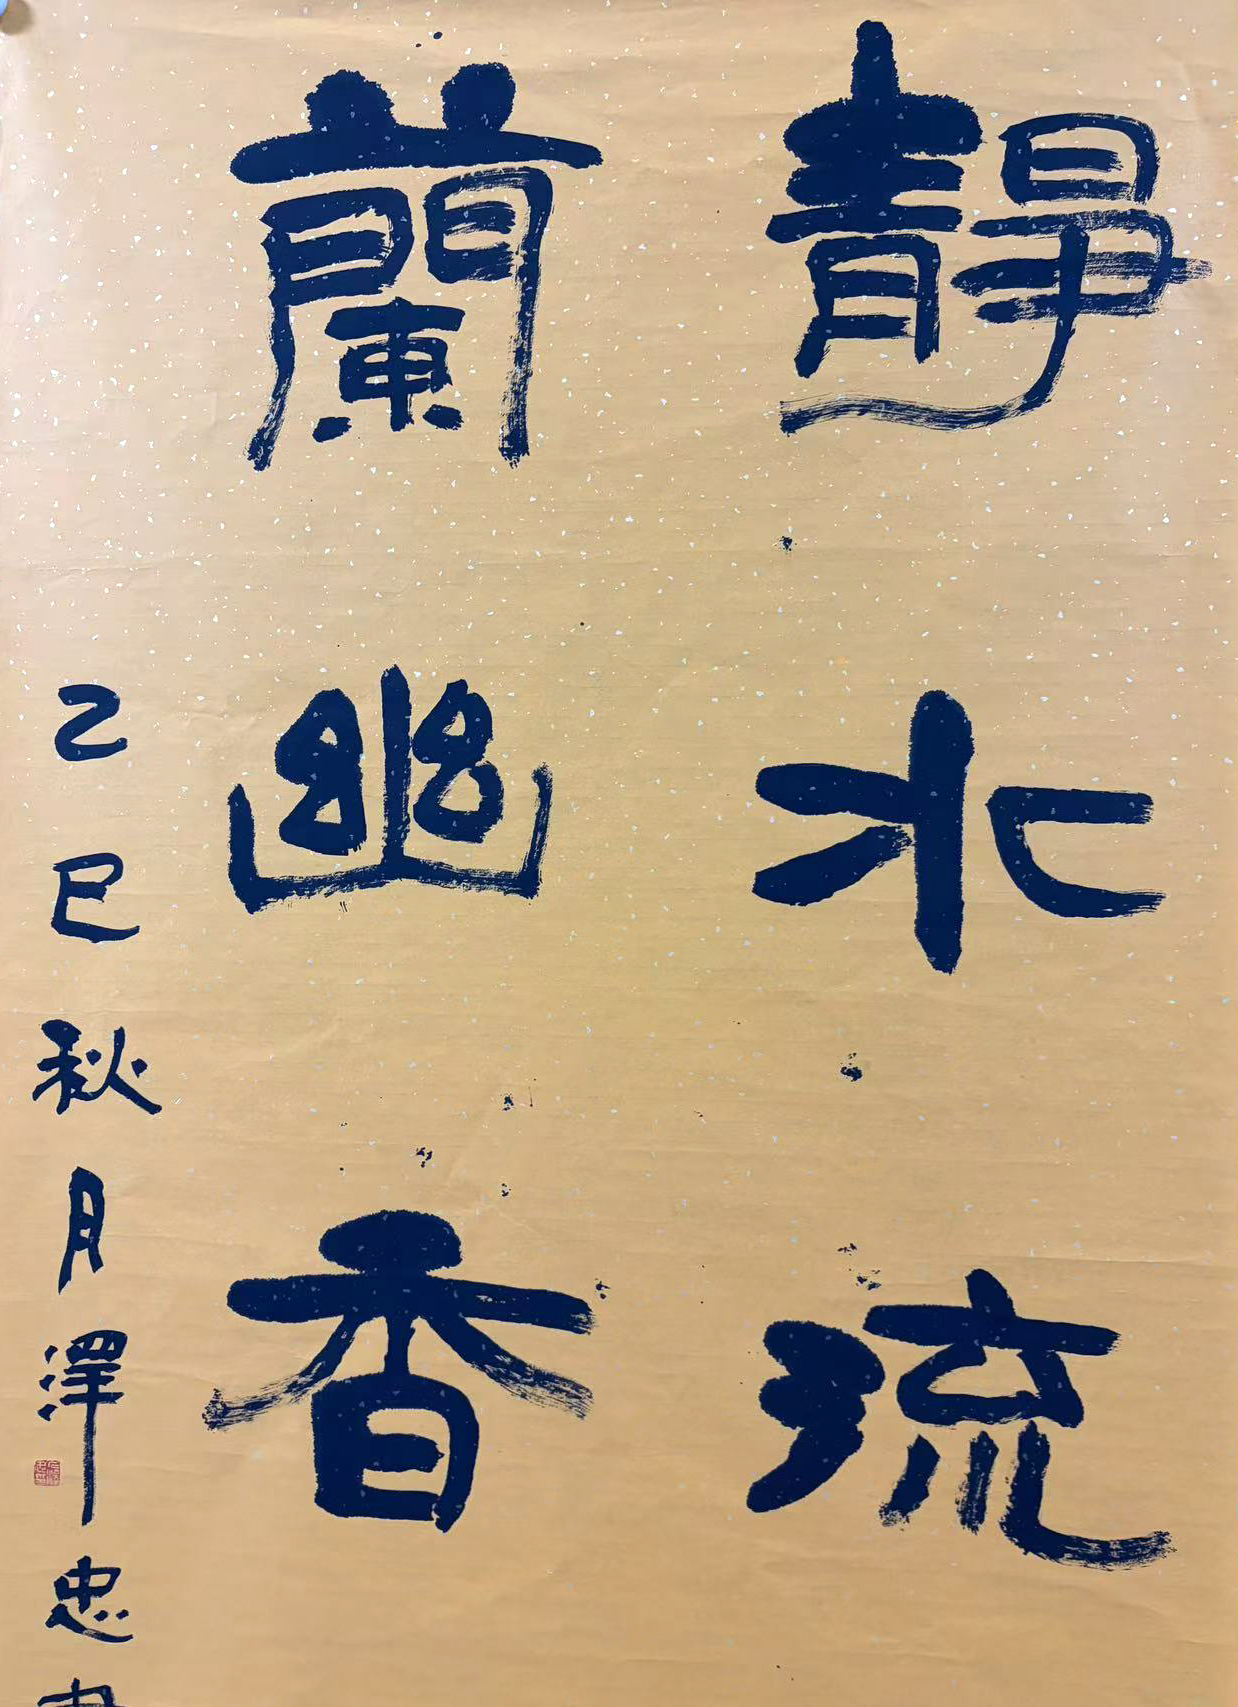 靜水流
蘭幽香
乙巳秋月澤忠書